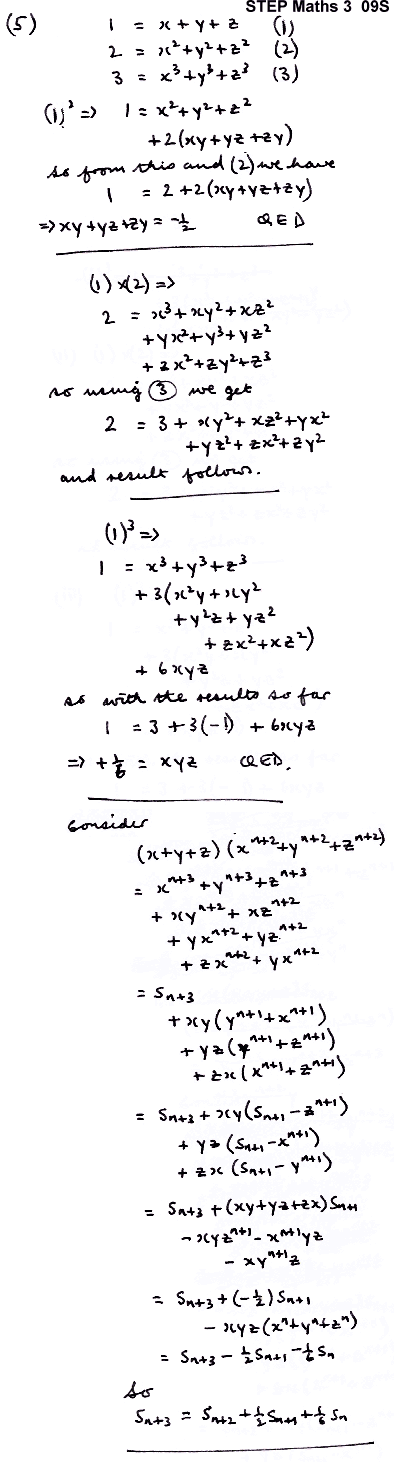 STEP Maths 3 09S
(5) 1 = x + y + z (1)
2 = x² + y² + z² (2)
3 = x³ + y³ + z³ (3)
(1)² => 1 = x² + y² + z²
+ 2(xy + yz + zy)
so from this and (2) we have
1 = 2 + 2(xy + yz + zy)
=> xy + yz + zy = -½ QED
(1) x (2) =>
2 = x³ + xy² + xz²
+ yx² + y³ + yz²
+ zx² + zy² + z³
so using ③ we get
2 = 3 + xy² + xz² + yx²
+ yz² + zx² + zy²
and result follows.
(1)³ =>
1 = x³ + y³ + z³
+ 3(x²y + xy²
+ y²z + yz²
+ zx² + xz²)
+ 6xyz
so with the results so far
1 = 3 + 3(-1) + 6xyz
=> + 1/6 = xyz QED.
Consider
(x + y + z)(xⁿ⁺² + yⁿ⁺² + zⁿ⁺²)
= xⁿ⁺³ + yⁿ⁺³ + zⁿ⁺³
+ xyⁿ⁺² + xzⁿ⁺²
+ yxⁿ⁺² + yzⁿ⁺²
+ zxⁿ⁺² + yxⁿ⁺²
= Sn+3
+ xy(yⁿ⁺¹ + xⁿ⁺¹)
+ yz(yⁿ⁺¹ + zⁿ⁺¹)
+ zx(xⁿ⁺¹ + zⁿ⁺¹)
= Sn+3 + xy(Sn+1 - zⁿ⁺¹)
+ yz(Sn+1 - xⁿ⁺¹)
+ zx(Sn+1 - yⁿ⁺¹)
= Sn+3 + (xy + yz + zx)Sn+1
- xyzⁿ⁺¹ - xⁿ⁺¹yz
- xyⁿ⁺¹z
= Sn+3 + (-½)Sn+1
- xyz(xⁿ + yⁿ + zⁿ)
= Sn+3 - ½Sn+1 - 1/6 Sn
So
Sn+3 = Sn+2 + ½Sn+1 + 1/6 Sn